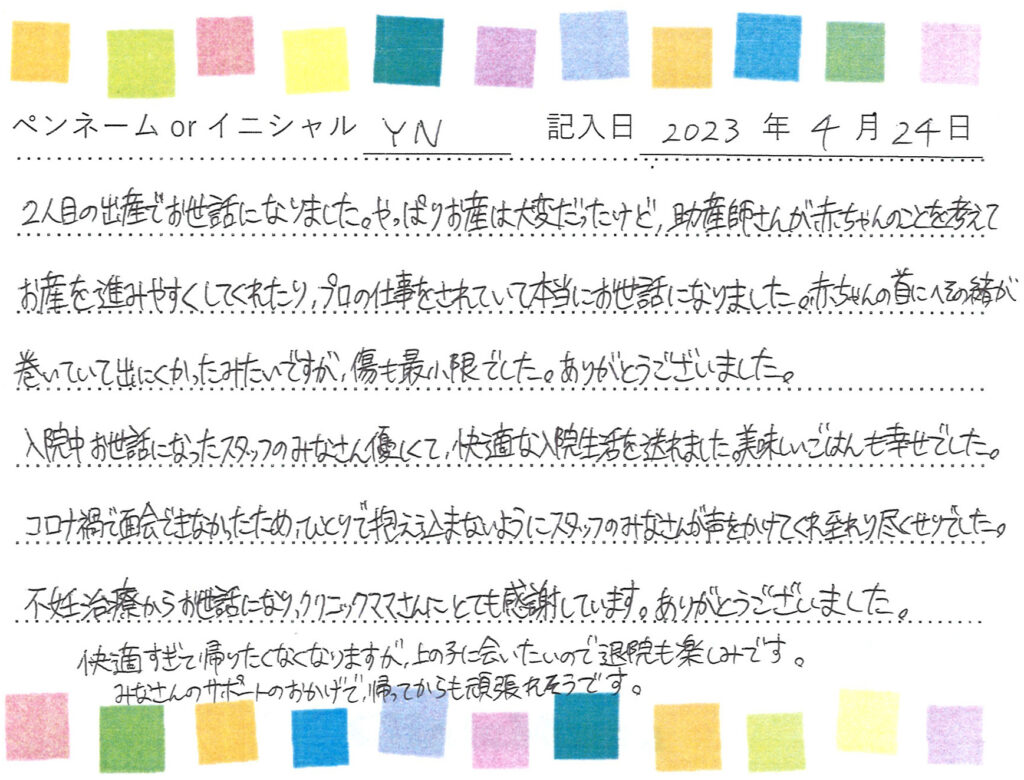 ペンネーム or イニシャル YN 記入日 2023 年 4 月 24 日
2人目の出産でお世話になりました。やっぱりお産は大変だったけど、助産師さんが赤ちゃんのことを考えて
お産を進みやすくしてくれたり、プロの仕事をされていて本当にお世話になりました。赤ちゃんの首にへその緒が
巻いていて出にくかったみたいですが、傷も最小限でした。ありがとうございました。
入院中お世話になったスタッフのみなさん優しくて、快適な入院生活を送れました。美味しいごはんも幸せでした。
コロナ禍で面会できなかったため、ひとりで抱え込まないようにスタッフのみなさんが声をかけてくれ至れり尽くせりでした。
不妊治療からお世話になり、クリニックママさんにとても感謝しています。ありがとうございました。
快適すぎて帰りたくなくなりますが、上の子に会いたいので退院も楽しみです。
みなさんのサポートのおかげで、帰ってからも頑張れそうです。